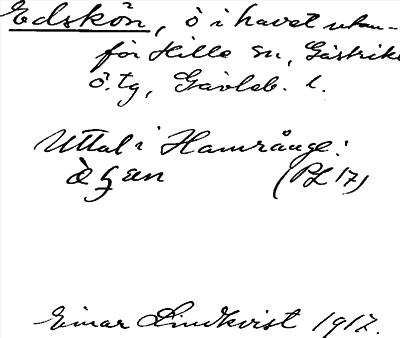 Edskön, ö i havet utan-
för Hille sn, Gästrikl.
ö. tg, Gävleb. l.
Uttal i Hamrånge:
(PL 17)
Einar Lindkvist 1917.